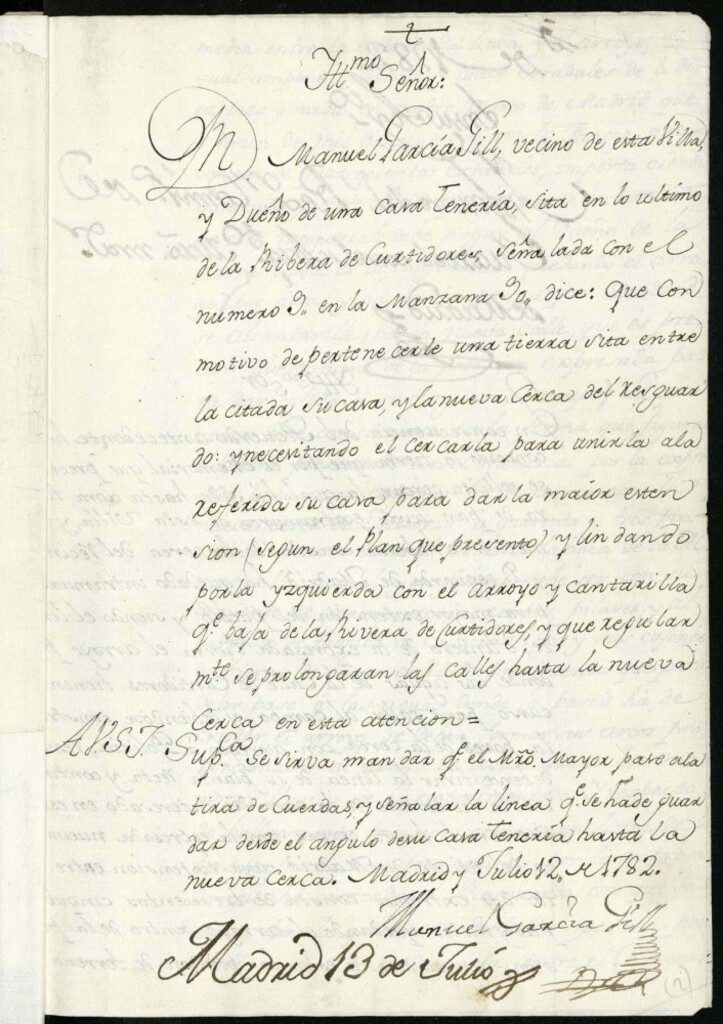 Yllmo Señor:
Manuel García Gill, vecino de esta Villa,
y Dueño de una casa Tenería, sita en lo ultimo
de la Ribera de Curtidores, señalada con el
numero 3,, en la Manzana 30,, dice: que con
motivo de pertenecerle una tierra sita entre
la citada su casa, y la nueva Cerca del resguar
do: y necesitando el cercarla para unirla a la
referida su casa para dar la maior esten
sion (segun el Plan que presento) y lindando
por la yzquierda con el Arroyo y cantarilla
q.e baja de la Rivera de Curtidores, y que regular
m.te se prolongaran las calles hasta la nueva
Cerca en esta atencion=
A V.S.I. Sup.ca Se sirva mandar q.e el Mro. Mayor pase a la
tira de Cuerdas, y señalar la linea q.e se ha de guar
dar desde el angulo de su casa Tenería hasta la
nueva cerca. Madrid y Julio 12, de 1782.
Manuel García Gill
Madrid 13 de Julio
(2)